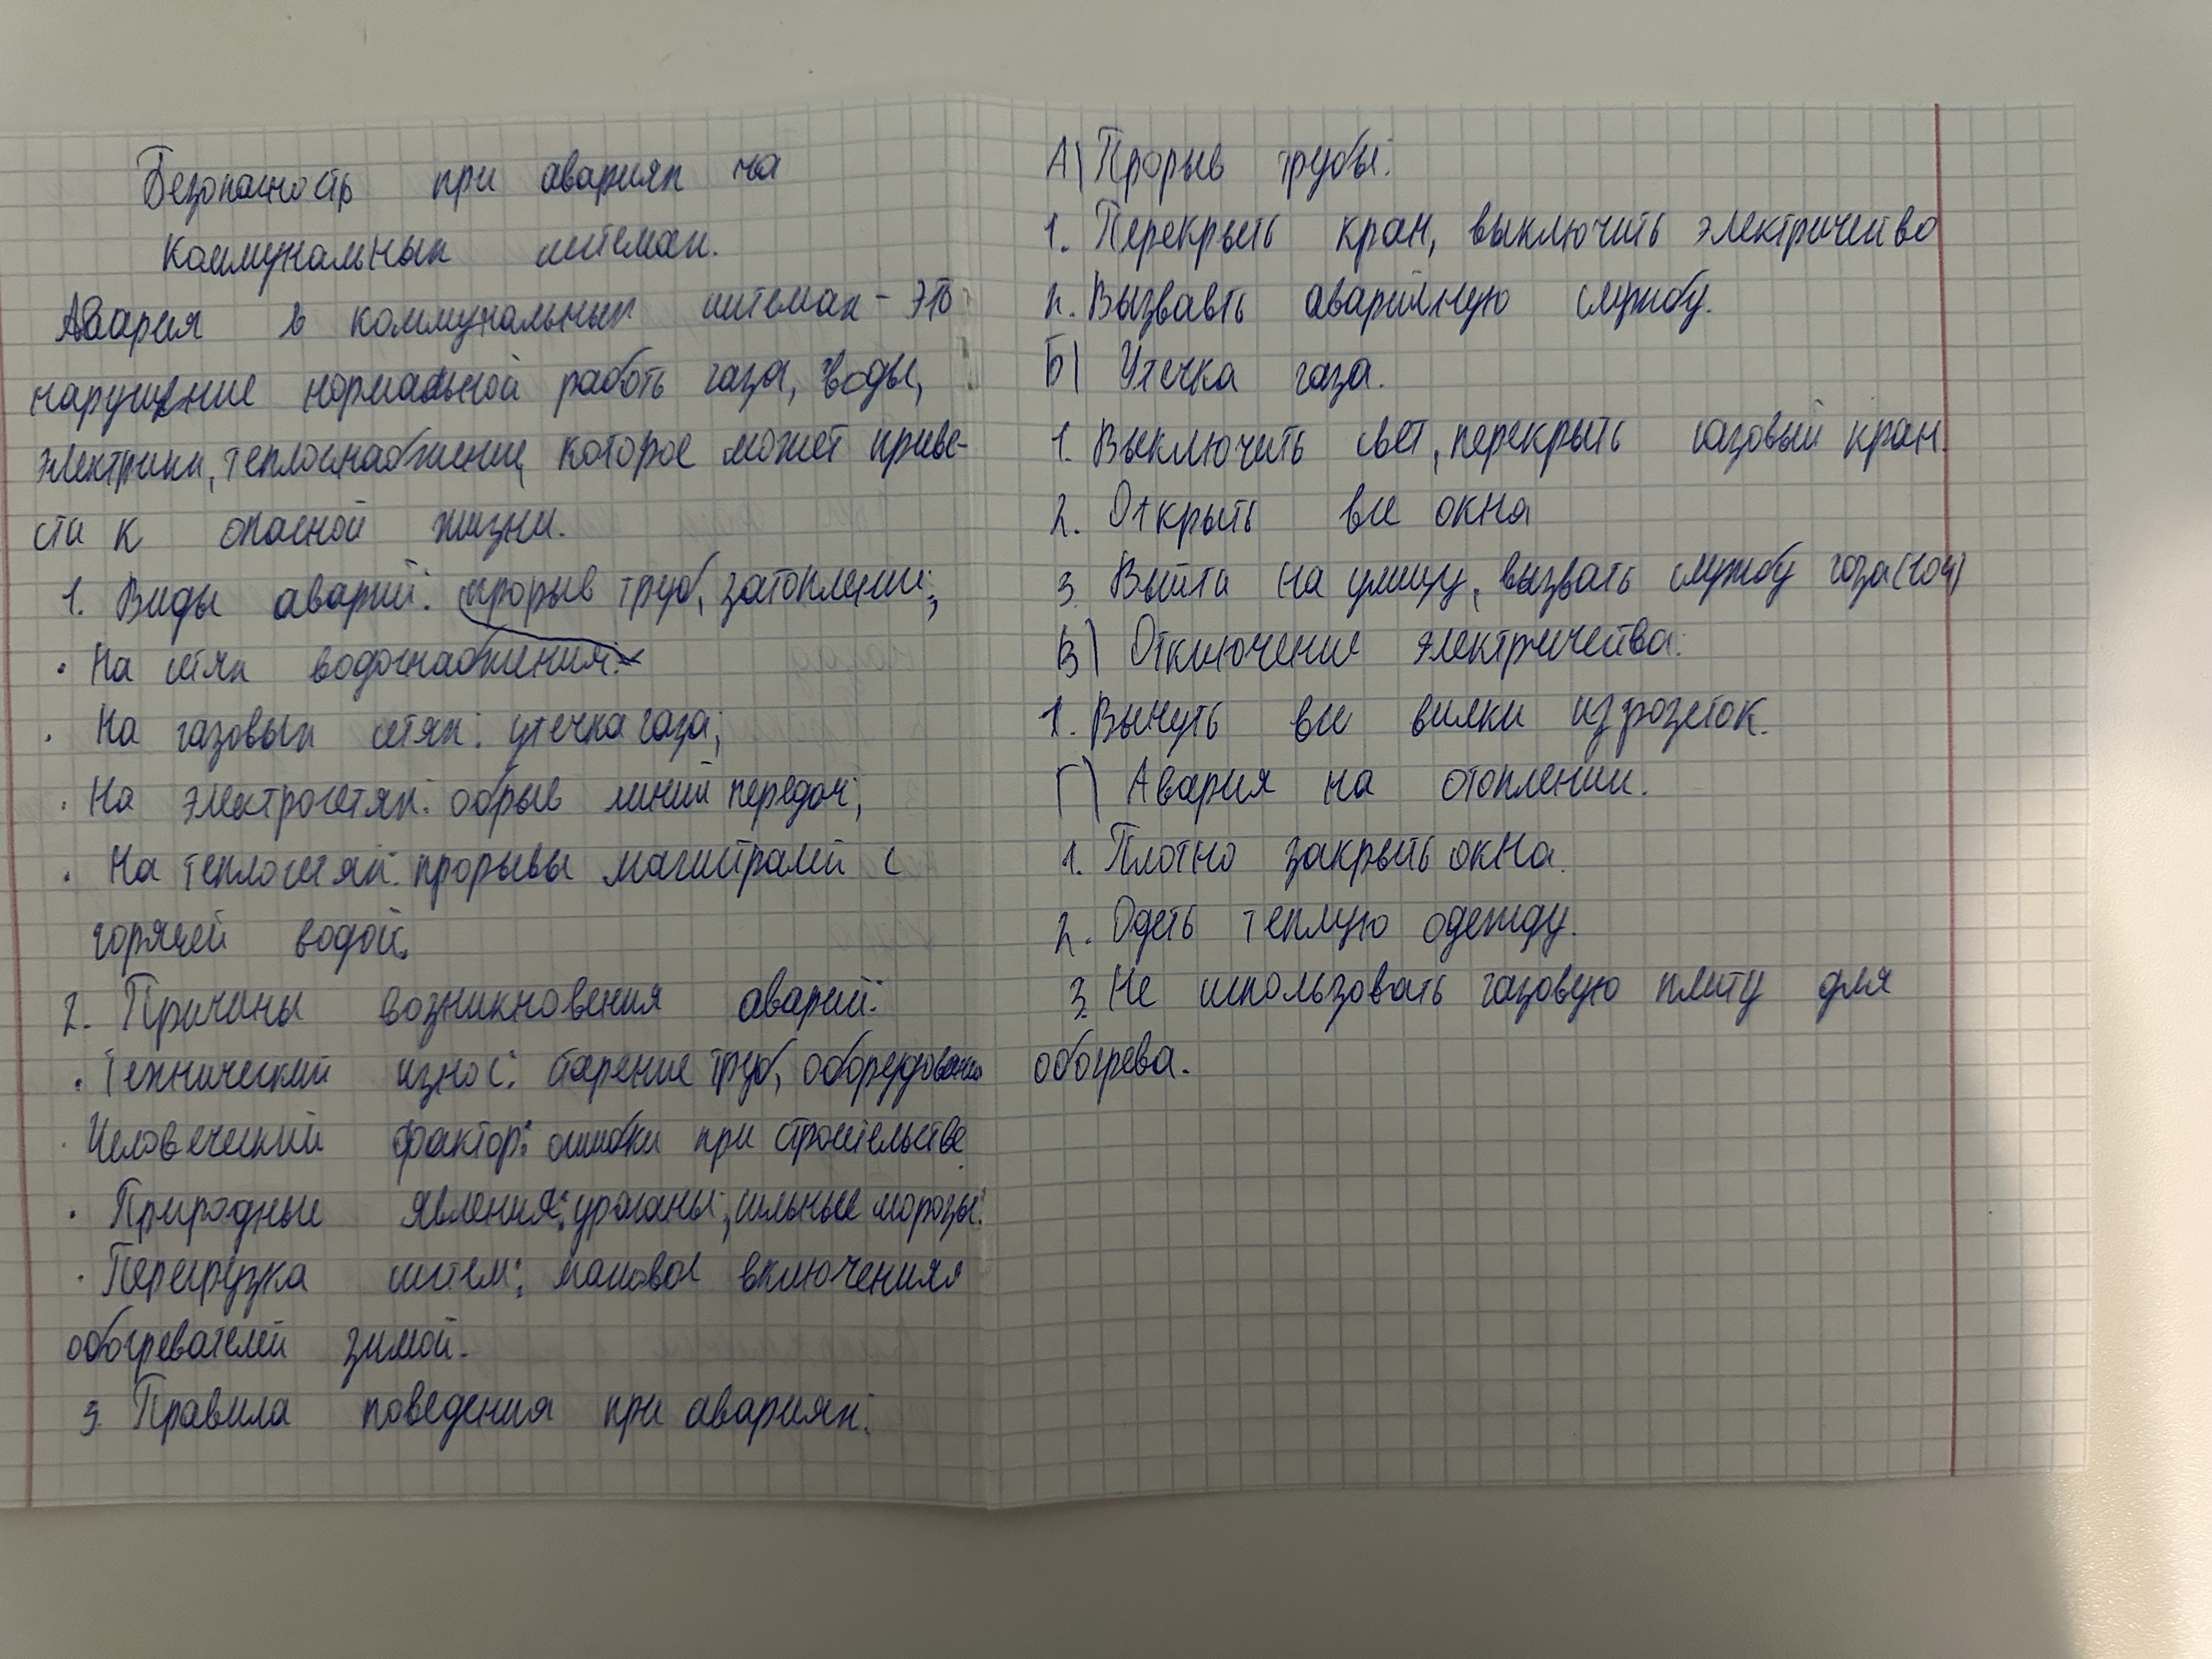 Безопасность при авариях на
коммунальных системах.
Авария в коммунальных системах - это
нарушение нормальной работь газа, воды,
электрики, теплоснабжение, которое может приве-
сти к опасной жизни.
1. Виды аварий: прорыв труб, затопление;
· На сетях водоснабжения:
· На газовых сетях: утечка газа;
· На электросетях: обрыв линий передач;
· На теплосетях: прорывы магистралей с
горячей водой.
2. Причины возникновения аварий:
· Технический износ: старение труб, оборудования
· Человеческий фактор: ошибки при строительстве.
· Природные явления: ураганы, сильные морозы.
· Перегрузка систем: массовое включения
обогревателей зимой.
3. Правила поведения при авариях:
А) Прорыв трубы:
1. Перекрыть кран, выключить электричество
2. Вызвавть аварийную службу.
Б) Утечка газа.
1. Выключить свет, перекрыть газовый кран.
2. Открыть все окна
3. Выйти на улицу, вызвать службу газа (104)
В) Отключение электричества:
1. Вынуть все вилки из розеток.
Г) Авария на отоплении.
1. Плотно закрыть окна.
2. Одеть теплую одежду.
3. Не использовать газовую плиту для
обогрева.